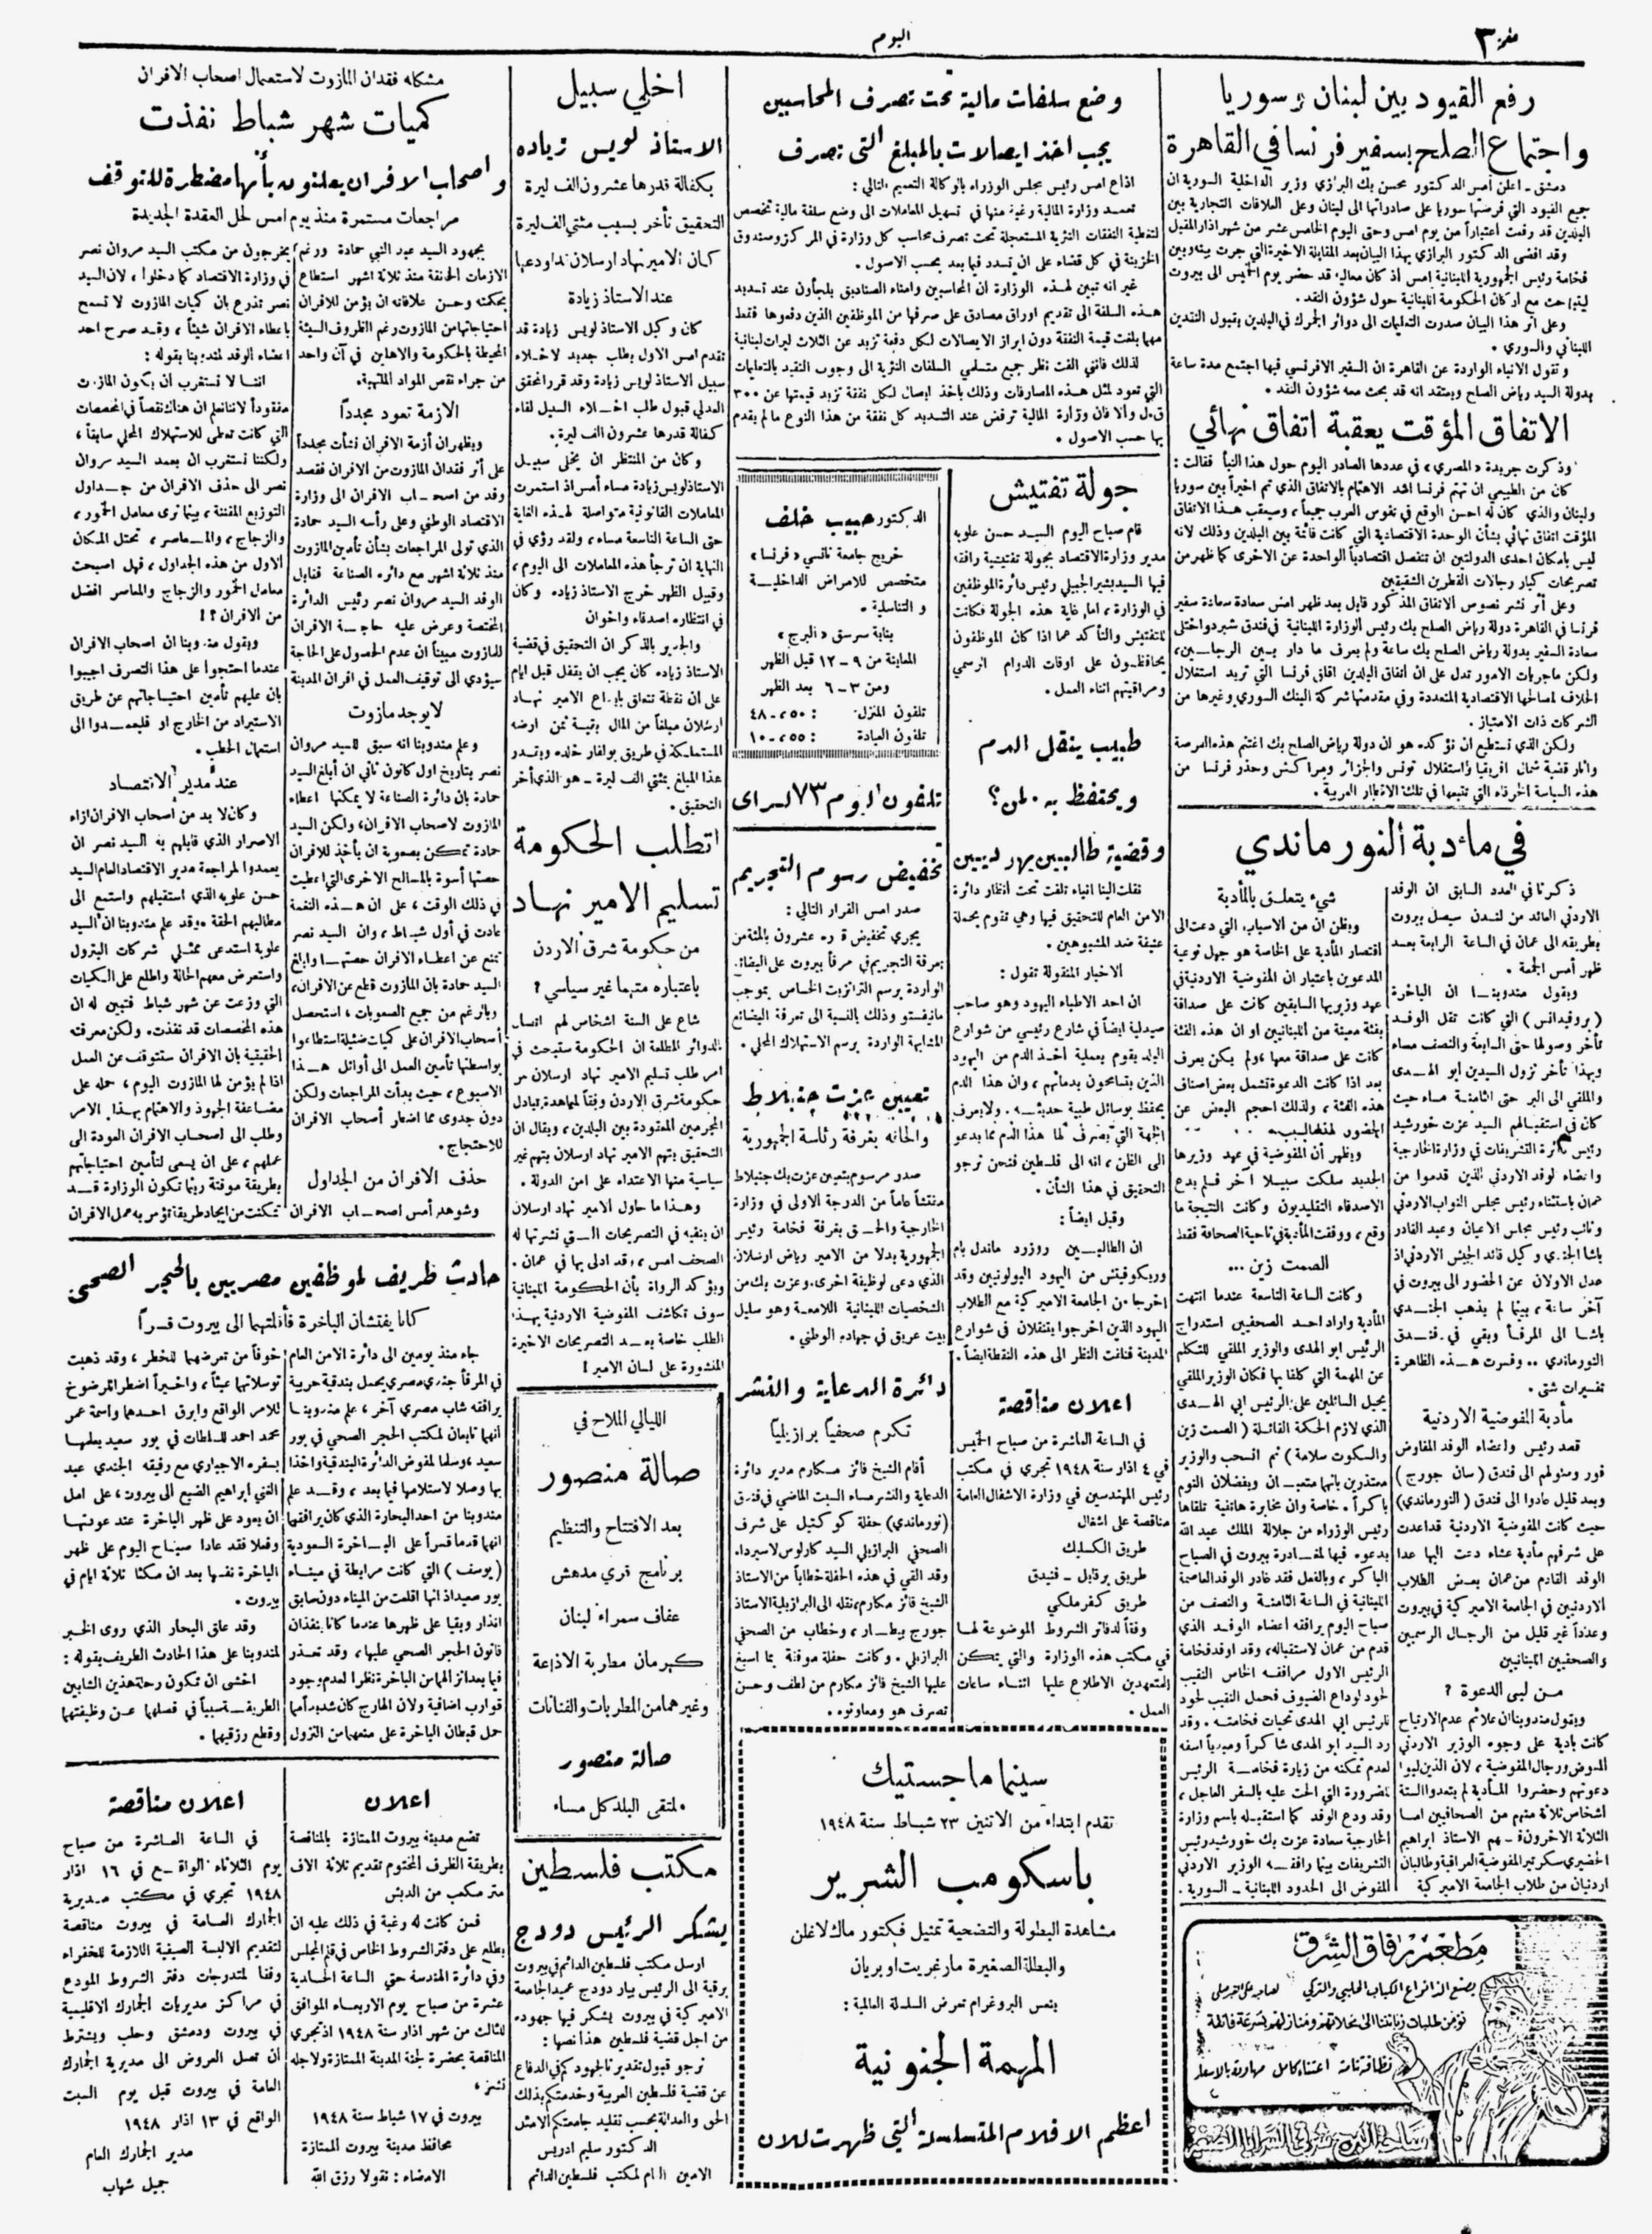 صفحة ٣
اليوم
رفع القيود بين لبنان وسوريا
واجتماع الصلح بسفير فرنسا في القاهرة
دمشق - اعلن أمس الدكتور محسن بك البرازي وزير الداخلية السورية ان
جميع القيود التي فرضتها سوريا على صادراتها الى لبنان وعلى العلاقات التجارية بين
البلدين قد رفعت اعتباراً من يوم امس وحتى اليوم الخامس عشر من شهر اذار المقبل
وقد افضى الدكتور البرازي بهذا البيان بعد المقابلة الاخيرة التي جرت بينه وبين
فخامة رئيس الجمهورية اللبنانية امس اذ كان معاليه قد حضر يوم الخميس الى بيروت
ليتباحث مع أركان الحكومة اللبنانية حول شؤون النقد .
وعلى اثر هذا البيان صدرت التعليمات الى دوائر الجمرك في البلدين بقبول النقدين
اللبناني والسوري .
وتقول الانباء الواردة عن القاهرة ان السفير الافرنسي فيها اجتمع مدة ساعة
بدولة السيد رياض الصلح ويعتقد انه قد بحث معه شؤون النقد .
الاتفاق المؤقت يعقبة اتفاق نهائي
وذكرت جريدة «المصري» في عددها الصادر اليوم حول هذا النبأ فقالت :
كان من الطبيعي ان تهتم فرنسا اشد الاهتمام بالاتفاق الذي تم اخيراً بين سوريا
ولبنان والذي كان له احسن الوقع في نفوس العرب جميعاً ، وسيعقب هذا الاتفاق
المؤقت اتفاق نهائي بشأن الوحدة الاقتصادية التي كانت قائمة بين البلدين وذلك لانه
ليس بامكان احدى الدولتين ان تنفصل اقتصادياً الواحدة عن الاخرى كما ظهر من
تصريحات كبار رجالات القطرين الشقيقين
وعلى أثر نشر نصوص الاتفاق المذكور قابل بعد ظهر امس سعادة سفير
فرنسا في القاهرة دولة رياض الصلح بك رئيس الوزارة اللبنانية في فندق شبرد واختلى
سعادة السفير بدولة رياض الصلح بك ساعة ولم يعرف ما دار بين الرجلين ،
ولكن ماجريات الامور تدل على ان اتفاق البلدين اقلق فرنسا التي تريد استغلال
الخلاف لمصالحها الاقتصادية المتعددة وفي مقدمتها شركة البنك السوري وغيرها من
الشركات ذات الامتياز .
ولكن الذي نستطيع ان نؤكده هو ان دولة رياض الصلح بك اغتنم هذه الفرصة
واثار قضية شمال افريقيا واستقلال تونس والجزائر ومراكش وحذر فرنسا من
هذه السياسة الخرقاء التي تتبعها في تلك الاقطار العربية .
في مأدبة النورماندي
ذكرنا في العدد السابق ان الوفد
الاردني العائد من لندن سيصل بيروت
بطريقه الى عمان في الساعة الرابعة بعد
ظهر أمس الجمعة .
ويقول مندوبنا ان الباخرة
(بروفيدانس) التي كانت تقل الوفد
تأخر وصولها حتى السابعة والنصف مساء
وبهذا تأخر نزول السيدين ابو الهدى
والملقي الى البر حتى الثامنة مساء حيث
كان في استقبالهم السيد عزت خورشيد
رئيس دائرة التشريفات في وزارة الخارجية
واعضاء لوفد الاردني الذين قدموا من
عمان باستثناء رئيس مجلس النواب الاردني
ونائب رئيس مجلس الاعيان وعبد القادر
باشا الجندي وكيل قائد الجيش الاردني اذ
عدل الاولان عن الحضور الى بيروت في
آخر ساعة ، بينما لم يذهب الجندي
باشا الى المرفأ وبقي في فندق
النورماندي .. وفسرت هذه الظاهرة
تفسيرات شتى .
مأدبة المفوضية الاردنية
قصد رئيس واعضاء الوفد المفاوض
فور وصولهم الى فندق (سان جورج)
وبعد قليل عادوا الى فندق (النورماندي)
حيث كانت المفوضية الاردنية قد اعدت
على شرفهم مأدبة عشاء دعت اليها عدا
الوفد القادم من عمان بعض الطلاب
الاردنيين في الجامعة الاميركية في بيروت
وعدداً غير قليل من الرجال الرسميين
والصحفيين اللبنانيين
من لبى الدعوة ؟
ويقول مندوبنا ان علائم عدم الارتياح
كانت بادية على وجوه الوزير الاردني
المفوض ورجال المفوضية ، لان الذين لبوا
دعوتهم وحضروا المأدبة لم يتعدوا الستة
اشخاص ثلاثة منهم من الصحافيين اما
الثلاثة الاخرون فهم الاستاذ ابراهيم
الخضيري سكرتير المفوضية العراقية وطالبان
اردنيان من طلاب الجامعة الاميركية
شيء يتعلق بالمأدبة
ويظن ان من الاسباب التي دعت الى
اقتصار المأدبة على الخاصة هو جهل نوعية
المدعوين باعتبار ان المفوضية الاردنية في
عهد وزيريها السابقين كانت على صداقة
بفئة معينة من اللبنانيين او ان هذه الفئة
كانت على صداقة معها ، ولم يكن يعرف
بعد اذا كانت الدعوة تشمل بعض اصناف
هذه الفئة ، ولذلك احجم البعض عن
الحضور لهذا السبب
ويظهر أن المفوضية في عهد وزيرها
الجديد سلكت سبيلا آخر فلم يدع
الاصدقاء التقليديون وكانت النتيجة ما
وقع ، ووفقت المأدبة في ناحية الصحافة فقط
الصمت زين ...
وكانت الساعة التاسعة عندما انتهت
المأدبة واراد احد الصحفيين استدراج
الرئيس ابو الهدى والوزير الملقي للتكلم
عن المهمة التي كلفا بها فكان الوزير الملقي
يحيل السائلين على الرئيس ابي الهدى
الذي لازم الحكمة القائلة (الصمت زين
والسكوت سلامة) ثم انسحب والوزير
معتذرين بانهما متعبان ويفضلان النوم
باكراً . خاصة وان مخابرة هاتفية تلقاها
رئيس الوزراء من جلالة الملك عبد الله
يدعوه فيها لمغادرة بيروت في الصباح
الباكر ، وبالفعل فقد غادر الوفد العاصمة
اللبنانية في الساعة الثامنة والنصف من
صباح اليوم يرافقه أعضاء الوفد الذي
قدم من عمان لاستقباله ، وقد اوفد فخامة
الرئيس الاول مرافقه الخاص النقيب
لحود لوداع الضيوف فحمل النقيب لحود
للرئيس ابي الهدى تحيات فخامته . وقد
رد السيد ابو الهدى شاكراً ومبدياً اسفه
لعدم تمكنه من زيارة فخامة الرئيس
للضرورة التي الحت عليه بالسفر العاجل ،
وقد ودع الوفد كما استقبله باسم وزارة
الخارجية سعادة عزت بك خورشيد رئيس
التشريفات بينما رافقه الوزير الاردني
المفوض الى الحدود اللبنانية - السورية .
مطعم زقاق الشرق
يصنع الذ انواع الكباب الحلبي والتركي
نؤمن طلبات زبائننا الى محلاتهم ومنازلهم بسرعة فائقة
نظافة تامة اعتناء كامل مهاودة بالاسعار
وضع سلفات مالية تحت تصرف المحاسبين
يجب اخذ ايصالات بالمبلغ التي تصرف
اذاع امس رئيس مجلس الوزراء بالوكالة التعميم التالي :
تعمد وزارة المالية رغبة منها في تسهيل المعاملات الى وضع سلفة مالية تخصص
لتغطية النفقات النثرية المستعجلة تحت تصرف محاسب كل وزارة في المركز وصندوق
الخزينة في كل قضاء على ان تسدد فيما بعد بحسب الاصول .
غير انه تبين لهذه الوزارة ان المحاسبين وامناء الصناديق يلجأون عند تسديد
هذه السلفة الى تقديم اوراق مصادق على صرفها من الموظفين الذين دفعوها فقط
مهما بلغت قيمة النفقة دون ابراز الايصالات لكل دفعة تزيد عن الثلاث ليرات لبنانية
لذلك فانني الفت نظر جميع متسلمي السلفات النثرية الى وجوب التقيد بالتعليمات
التي تعود لمثل هذه المصارفات وذلك باخذ ايصال لكل نفقة تزيد قيمتها عن ٣٠٠
ق.ل والا فان وزارة المالية ترفض عند التسديد كل نفقة من هذا النوع ما لم يقدم
بها حسب الاصول .
جولة تفتيش
قام صباح اليوم السيد حسن علوية
مدير وزارة الاقتصاد بجولة تفتيشية رافقه
فيها السيد بشير الجبيلي رئيس دائرة الموظفين
في الوزارة ، اما غاية هذه الجولة فكانت
للتفتيش والتأكد عما اذا كان الموظفون
يحافظون على اوقات الدوام الرسمي
ومراقبتهم اثناء العمل .
طبيب ينقل الدم
ويحتفظ به . لمن ؟
وقضية طالبين يهوديين
نقلت الينا انباء تلفت تحت أنظار دائرة
الامن العام للتحقيق فيها وهي تقوم بحملة
عنيفة ضد المشبوهين .
الاخبار المنقولة تقول :
ان احد الاطباء اليهود وهو صاحب
صيدلية ايضاً في شارع رئيسي من شوارع
البلد يقوم بعملية أخذ الدم من اليهود
الذين يتسامحون بدمائهم ، وان هذا الدم
يحفظ بوسائل طبية حديثة . ولا يعرف
الجهة التي يصرف لها هذا الدم مما يدعو
الى الظن ، انه الى فلسطين فنحن نرجو
التحقيق في هذا الشأن .
وقيل ايضاً :
ان الطالبين روزرد ماندل بام
وربكوفيتش من اليهود البولونيين وقد
اخرجا من الجامعة الاميركية مع الطلاب
اليهود الذين اخرجوا يتنقلان في شوارع
المدينة فنلفت النظر الى هذه النقطة ايضاً .
اعلان مناقصة
في الساعة العاشرة من صباح الخميس
في ٤ اذار سنة ١٩٤٨ تجري في مكتب
رئيس المهندسين في وزارة الاشغال العامة
مناقصة على اشغال
طريق الكسليك
طريق برقايل - فنيدق
طريق كفرملكي
وفقاً لدفاتر الشروط الموضوعة لها
في مكتب هذه الوزارة والتي يتمكن
المتعهدين الاطلاع عليها اثناء ساعات
العمل .
الدكتور حبيب خلف
خريج جامعة نانسي «فرنسا»
متخصص للامراض الداخلية
والتناسلية .
بناية سرسق «البرج»
المعاينة من ٩ - ١٢ قبل الظهر
ومن ٣ - ٦ بعد الظهر
تلفون المنزل :
تلفون العيادة :
تلفون اليوم ٧٣ السراي
تخفيض رسوم التجريم
صدر امس القرار التالي :
يجري تخفيض قدره عشرون بالمئة من
تعرفة التجريم في مرفأ بيروت على البضائع
الواردة برسم الترانزيت الخاص بموجب
مانيفستو وذلك بالنسبة الى تعرفة البضائع
المشابهة الواردة برسم الاستهلاك المحلي .
تعيين عزت جنبلاط
والحاقه بغرفة رئاسة الجمهورية
صدر مرسوم بتعيين عزت بك جنبلاط
مفتشاً عاماً من الدرجة الاولى في وزارة
الخارجية والحق بغرفة فخامة رئيس
الجمهورية بدلا من الامير رياض ارسلان
الذي دعى لوظيفة اخرى . وعزت بك من
الشخصيات اللبنانية اللامعة وهو سليل
بيت عريق في جهاده الوطني .
دائرة الدعاية والنشر
تكرم صحفياً برازيلياً
أقام الشيخ فائز مكارم مدير دائرة
الدعاية والنشر مساء السبت الماضي في فندق
(نورماندي) حفلة كوكتيل على شرف
الصحفي البرازيلي السيد كارلوس لاسيردا .
وقد القي في هذه الحفلة خطاباً من الاستاذ
الشيخ فائز مكارم ، نقله الى البرازيلية الاستاذ
جورج بيطار ، وخطاب من الصحفي
البرازيلي . وكانت حفلة موفقة بما اسبغ
عليها الشيخ فائز مكارم من لطف وحسن
تصرف هو ومعاونوه .
سينما ماجستيك
تقدم ابتداء من الاثنين ٢٣ شباط سنة ١٩٤٨
باسكومب الشرير
مشاهدة البطولة والتضحية تمثيل فكتور ماك لاغلن
والبطلة الصغيرة مارغريت اوبريان
بنفس البروغرام تعرض السلسلة العالمية :
المهمة الجنونية
اعظم الافلام المتسلسلة التي ظهرت للان
اخلي سبيل
الاستاذ لويس زياده
بكفالة قدرها عشرون الف ليرة
التحقيق تأخر بسبب مئتي الف ليرة
كان الامير نهاد ارسلان قد اودعها
عند الاستاذ زيادة
كان وكيل الاستاذ لويس زيادة قد
تقدم امس الاول بطلب جديد لاخلاء
سبيل الاستاذ لويس زيادة وقد قرر المحقق
العدلي قبول طلب اخلاء السبيل لقاء
كفالة قدرها عشرون الف ليرة .
وكان من المنتظر ان يخلى سبيل
الاستاذ لويس زيادة مساء أمس اذ استمرت
المعاملات القانونية متواصلة لهذه الغاية
حتى الساعة التاسعة مساء ، ولقد رؤي في
النهاية ان ترجأ هذه المعاملات الى اليوم ،
وقبيل الظهر خرج الاستاذ زياده وكان
في انتظاره اصدقاء واخوان
والجدير بالذكر ان التحقيق في قضية
الاستاذ زياده كان يجب ان يقفل قبل ايام
على ان نقطة تتعلق بايداع الامير نهاد
ارسلان مبلغاً من المال بقيمة ثمن ارضه
المستملكة في طريق بولفار خلده ويقدر
هذا المبلغ بمئتي الف ليرة - هو الذي أخر
التحقيق .
اتطلب الحكومة
تسليم الامير نهاد
من حكومة شرق الاردن
باعتباره متهما غير سياسي ؟
شاع على السنة اشخاص لهم اتصال
بالدوائر المطلعة ان الحكومة ستبحث في
امر طلب تسليم الامير نهاد ارسلان من
حكومة شرق الاردن وفقاً لمعاهدة تبادل
المجرمين المعقودة بين البلدين ، ويقال ان
التحقيق يتهم الامير نهاد ارسلان بتهم غير
سياسية منها الاعتداء على امن الدولة .
وهذا ما حاول الامير نهاد ارسلان
ان ينفيه في التصريحات التي نشرتها له
الصحف امس ، وقد ادلى بها في عمان .
ويؤكد الرواة بأن الحكومة اللبنانية
سوف تكاشف المفوضية الاردنية بهذا
الطلب خاصة بعد التصريحات الاخيرة
المنشورة على لسان الامير !
الليالي الملاح في
صالة منصور
بعد الافتتاح والتنظيم
برنامج قوي مدهش
عفاف سمراء لبنان
كيرمان مطربة الاذاعة
وغيرهما من المطربات والفنانات
صالة منصور
ملتقى البلد كل مساء
مكتب فلسطين
يشكر الرئيس دودج
ارسل مكتب فلسطين الدائم في بيروت
برقية الى الرئيس بيار دودج عميد الجامعة
الاميركية في بيروت يشكر فيها جهوده
من اجل قضية فلسطين هذا نصها :
نرجو قبول تقديرنا لجهودكم في الدفاع
عن قضية فلسطين العربية وخدمتكم بذلك
الحق والعدالة بحسب تقليد جامعتكم الامثل
الدكتور سليم ادريس
الامين العام لمكتب فلسطين الدائم
مشكلة فقدان المازوت لاستعمال اصحاب الافران
كميات شهر شباط نفذت
واصحاب الافران يعلنون بأنها مضطرة للتوقف
مراجعات مستمرة منذ يوم امس لحل العقدة الجديدة
بجهود السيد عبد النبي حمادة ورغم
الازمات الخانقة منذ ثلاثة اشهر استطاع
بحكمته وحسن علاقاته ان يؤمن للافران
احتياجاتها من المازوت رغم الظروف السيئة
المحيطة بالحكومة والاهلين في آن واحد
من جراء نقص المواد الملتهبة .
الازمة تعود مجدداً
ويظهر ان أزمة الافران نشأت مجدداً
على أثر فقدان المازوت من الافران فقصد
وفد من اصحاب الافران الى وزارة
الاقتصاد الوطني وعلى رأسه السيد حمادة
الذي تولى المراجعات بشأن تأمين المازوت
منذ ثلاثة اشهر مع دائرة الصناعة فقابل
الوفد السيد مروان نصر رئيس الدائرة
المختصة وعرض عليه حاجة الافران
للمازوت مبيناً ان عدم الحصول على الحاجة
سيؤدي الى توقيف العمل في افران المدينة
لا يوجد مازوت
وعلم مندوبنا انه سبق للسيد مروان
نصر بتاريخ اول كانون ثاني ان أبلغ السيد
حمادة بان دائرة الصناعة لا يمكنها اعطاء
المازوت لاصحاب الافران ، ولكن السيد
حمادة تمكن بصعوبة ان يأخذ للافران
حصتها أسوة بالمصالح الاخرى التي اعطيت
في ذلك الوقت ، على ان هذه النغمة
عادت في أول شباط ، وان السيد نصر
تمنع عن اعطاء الافران حصتها وابلغ
السيد حمادة بان المازوت قطع عن الافران ،
وبالرغم من جميع الصعوبات ، استحصل
أصحاب الافران على كميات ضئيلة استطاعوا
بواسطتها تأمين العمل الى أوائل هذا
الاسبوع ، حيث بدأت المراجعات ولكن
دون جدوى مما اضطر أصحاب الافران
للاحتجاج .
حذف الافران من الجداول
وشوهد أمس اصحاب الافران
يخرجون من مكتب السيد مروان نصر
في وزارة الاقتصاد كما دخلوا ، لان السيد
نصر تذرع بان كميات المازوت لا تسمح
باعطاء الافران شيئاً ، وقد صرح احد
اعضاء الوفد لمندوبنا بقوله :
اننا لا نستغرب أن يكون المازوت
مفقوداً لاننا نعلم ان هناك نقصاً في المخصصات
التي كانت تعطى للاستهلاك المحلي سابقاً ،
ولكننا نستغرب ان يعمد السيد مروان
نصر الى حذف الافران من جداول
التوزيع المقننة ، بينما نرى معامل الخمور ،
والزجاج ، والمعاصر ، تحتل المكان
الاول من هذه الجداول ، فهل اصبحت
معامل الخمور والزجاج والمعاصر افضل
من الافران ؟ !
ويقول مندوبنا ان اصحاب الافران
عندما احتجوا على هذا التصرف اجيبوا
بان عليهم تأمين احتياجاتهم عن طريق
الاستيراد من الخارج او فليعمدوا الى
استعمال الحطب .
عند مدير الاقتصاد
وكان لا بد من أصحاب الافران ازاء
الاصرار الذي قابلهم به السيد نصر ان
يعمدوا لمراجعة مدير الاقتصاد العام السيد
حسن علويه الذي استقبلهم واستمع الى
مطالبهم الحقة . وقد علم مندوبنا ان السيد
علوية استدعى ممثلي شركات البترول
واستعرض معهم الحالة واطلع على الكميات
التي وزعت عن شهر شباط فتبين له ان
هذه المخصصات قد نفذت . ولكن معرفته
الحقيقية بان الافران ستتوقف عن العمل
اذا لم يؤمن لها المازوت اليوم ، حمله على
مضاعفة الجهود والاهتمام بهذا الامر
وطلب الى اصحاب الافران العودة الى
عملهم ، على ان يسعى لتأمين احتياجاتهم
بطريقة موقتة ريثما تكون الوزارة قد
تمكنت من ايجاد طريقة تؤمن به عمل الافران
حادث ظريف لموظفين مصريين بالحجر الصحي
كانا يفتشان الباخرة فأقلتهما الى بيروت قسراً
جاء منذ يومين الى دائرة الامن العام
في المرفأ جندي مصري يحمل بندقية حربية
يرافقه شاب مصري آخر ، علم مندوبنا
أنهما تابعان لمكتب الحجر الصحي في بور
سعيد ، وسلما لمفوض الدائرة البندقية واخذا
بها وصلا لاستلامها فيما بعد ، وقد علم
مندوبنا من احد البحارة الذي كان يرافقهما
انهما قدما قسراً على الباخرة السعودية
(يوسف) التي كانت مرابطة في ميناء
بور سعيد اذ انها اقلعت من الميناء دون سابق
انذار وبقيا على ظهرها عندما كانا ينفذان
قانون الحجر الصحي عليها ، وقد تعذر
فيما بعد انزالهما من الباخرة نظرا لعدم وجود
قوارب اضافية ولان الهارج كان شديداً مما
حمل قبطان الباخرة على منعهما من النزول
خوفاً من تعرضهما للخطر ، وقد ذهبت
توسلاتهما عبثاً ، واخيراً اضطرا للرضوخ
للامر الواقع وابرق احدهما واسمه عمر
محمد احمد للسلطات في بور سعيد يعلمها
بسفره الاجباري مع رفيقه الجندي عبد
الغني ابراهيم الضبع الى بيروت ، على امل
ان يعود على ظهر الباخرة عند عودتها
وفعلا فقد عادا صباح اليوم على ظهر
الباخرة نفسها بعد ان مكثا ثلاثة ايام في
بيروت .
وقد علق البحار الذي روى الخبر
لمندوبنا على هذا الحادث الظريف بقوله :
اخشى ان تكون رحلة هذين الشابين
الظريفة سبباً في فصلهما عن وظيفتهما
وقطع رزقهما .
اعلان
تضع مدينة بيروت الممتازة بالمناقصة
بطريقة الظرف المختوم تقديم ثلاثة الاف
متر مكعب من الدبش
فمن كانت له رغبة في ذلك عليه ان
يطلع على دفتر الشروط الخاص في قلم المجلس
وفي دائرة الهندسة حتى الساعة الحادية
عشرة من صباح يوم الاربعاء الموافق
للثالث من شهر اذار سنة ١٩٤٨ اذ تجري
المناقصة بحضرة لجنة المدينة الممتازة ولاجله
نشر ،
بيروت في ١٧ شباط سنة ١٩٤٨
محافظ مدينة بيروت الممتازة
الامضاء : نقولا رزق الله
اعلان مناقصة
في الساعة العاشرة من صباح
يوم الثلاثاء الواقع في ١٦ اذار
١٩٤٨ تجري في مكتب مديرية
الجمارك العامة في بيروت مناقصة
لتقديم الالبسة الصيفية اللازمة للخفراء
وفقا لمندرجات دفتر الشروط المودع
في مراكز مديريات الجمارك الاقليمية
في بيروت ودمشق وحلب ويشترط
أن تصل العروض الى مديرية الجمارك
العامة في بيروت قبل يوم السبت
الواقع في ١٣ اذار ١٩٤٨
مدير الجمارك العام
جميل شهاب